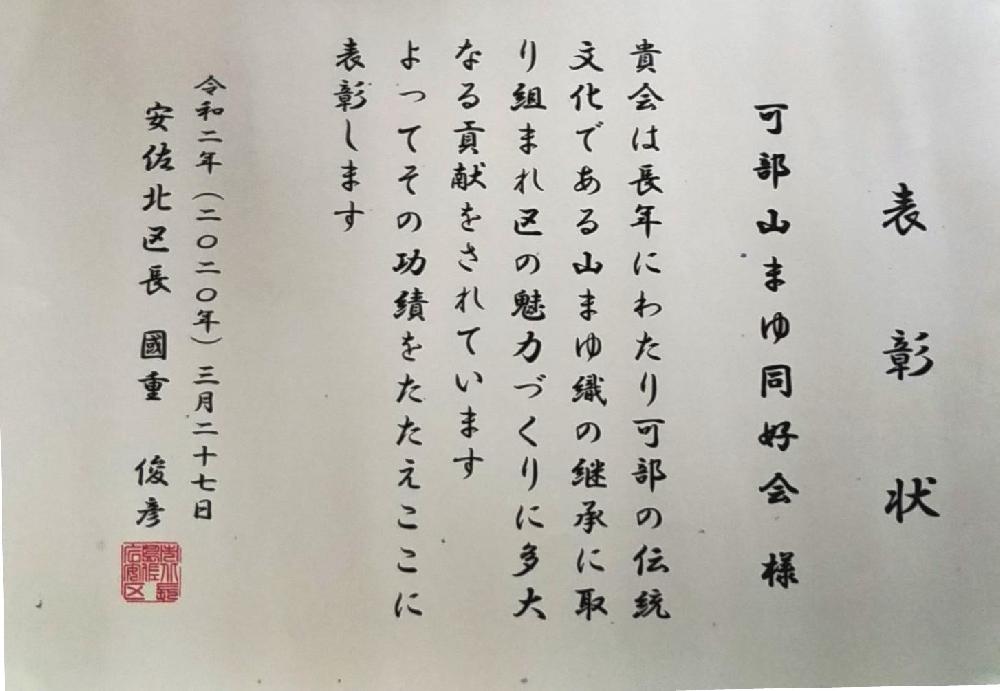 表彰状
可部山まゆ同好会 様
貴会は長年にわたり可部の伝統
文化である山まゆ織の継承に取
り組まれ区の魅力づくりに多大
なる貢献をされています
よってその功績をたたえここに
表彰します
令和二年(二〇二〇年)三月二十七日
安佐北区長 國重 俊彦